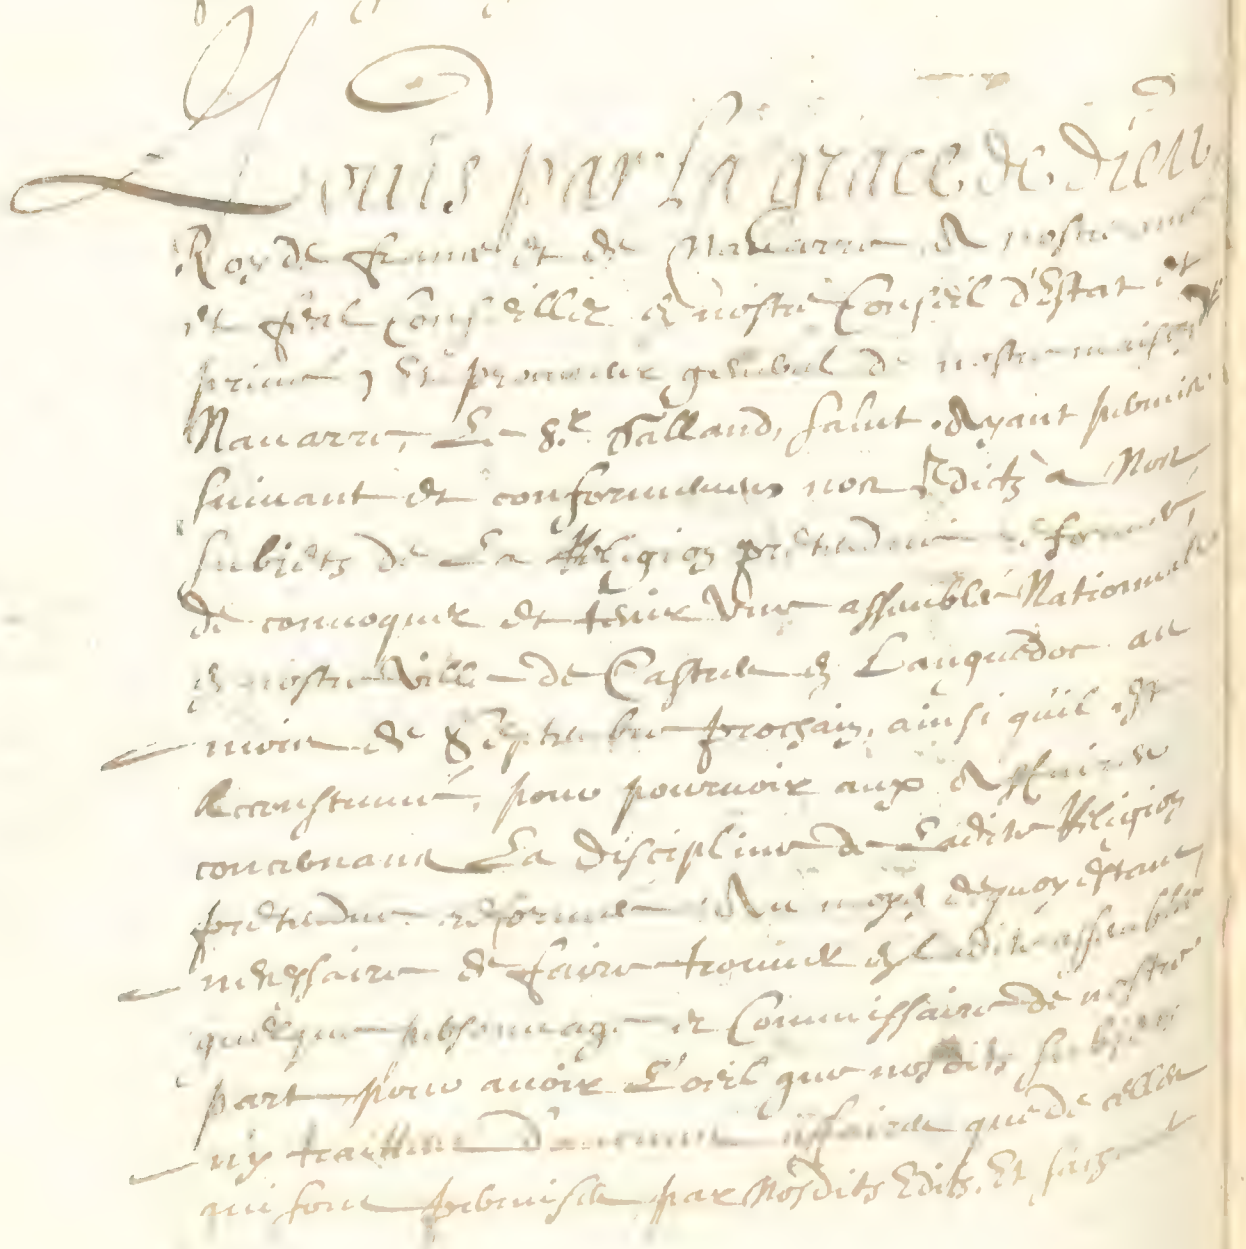 Louis par la grace de Dieu
Roy de france et de Navarre A nostre amé
et feal Conseiller en nostre Conseil d'Estat et
privé, et procureur general de nostre maison
Navarre, Le Sr. Galland, salut. Ayant permis
suivant et conformement nos Edictz à Nos
subjets de La Religion pretendue reformée,
de convoquer et tenir une assemblée Nationnale
en nostre ville de Castres en Languedoc au
mois de Septembre prochain, ainsi qu'il est
accoustumé, pour pourvoir aux Affaires
concernans La discipline de Ladite Religion
pretendue reformée Au moyen dequoy estant
necessaire de faire trouver en ladite assemblée
quelque personnage et Commissaire de nostre
part pour avoir L'oeil que nosdits subjets
n'y traittent d'aucunes affaires que de celles
qui sont permises par Nosdits Edits. Et